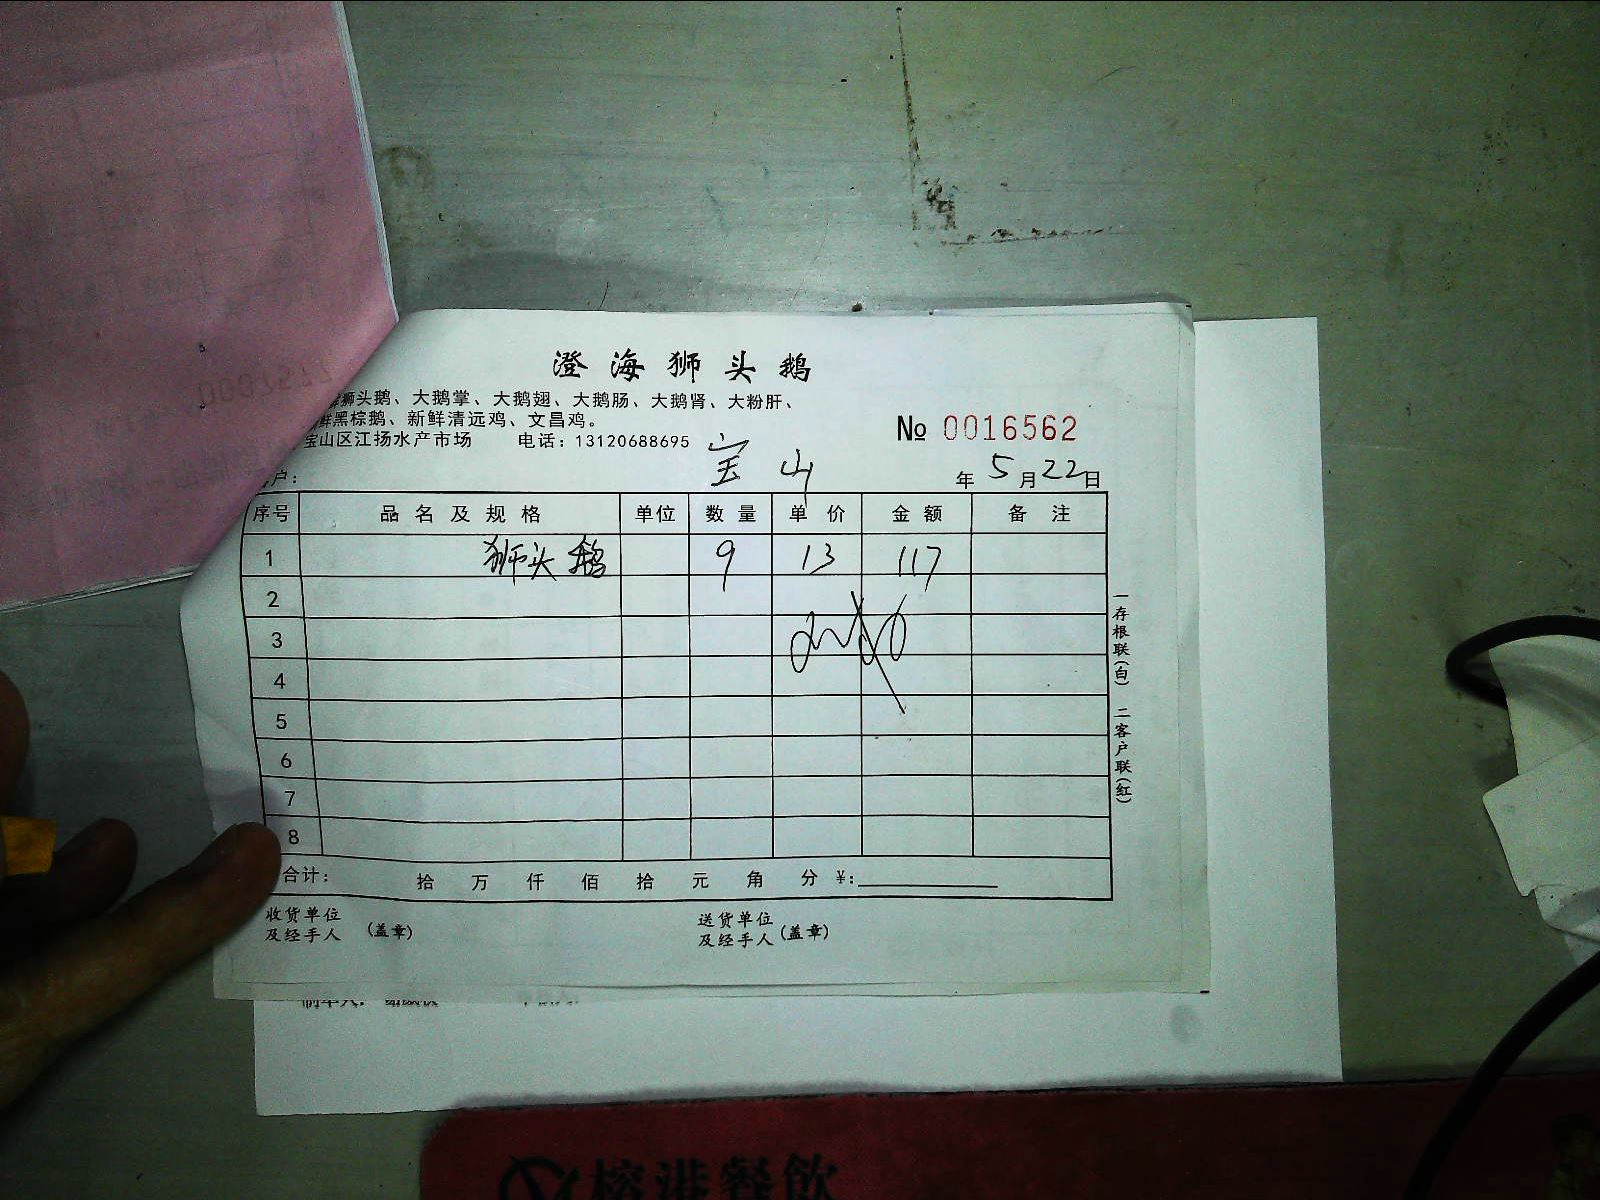 澄海狮头鹅
狮头鹅、大鹅掌、大鹅翅、大鹅肠、大鹅肾、大粉肝、
鲜黑棕鹅、新鲜清远鸡、文昌鸡。
宝山区江扬水产市场 电话:13120688695
№ 0016562
户: 宝山 年5月22日
序号 品名及规格 单位 数量 单价 金额 备注
1 狮头鹅 9 13 117
2
3
4
5
6
7
8
合计: 拾 万 仟 佰 拾 元 角 分 ¥:
收货单位 送货单位
及经手人 (盖章) 及经手人 (盖章)
一存根联(白) 二客户联(红)
榕港餐飲